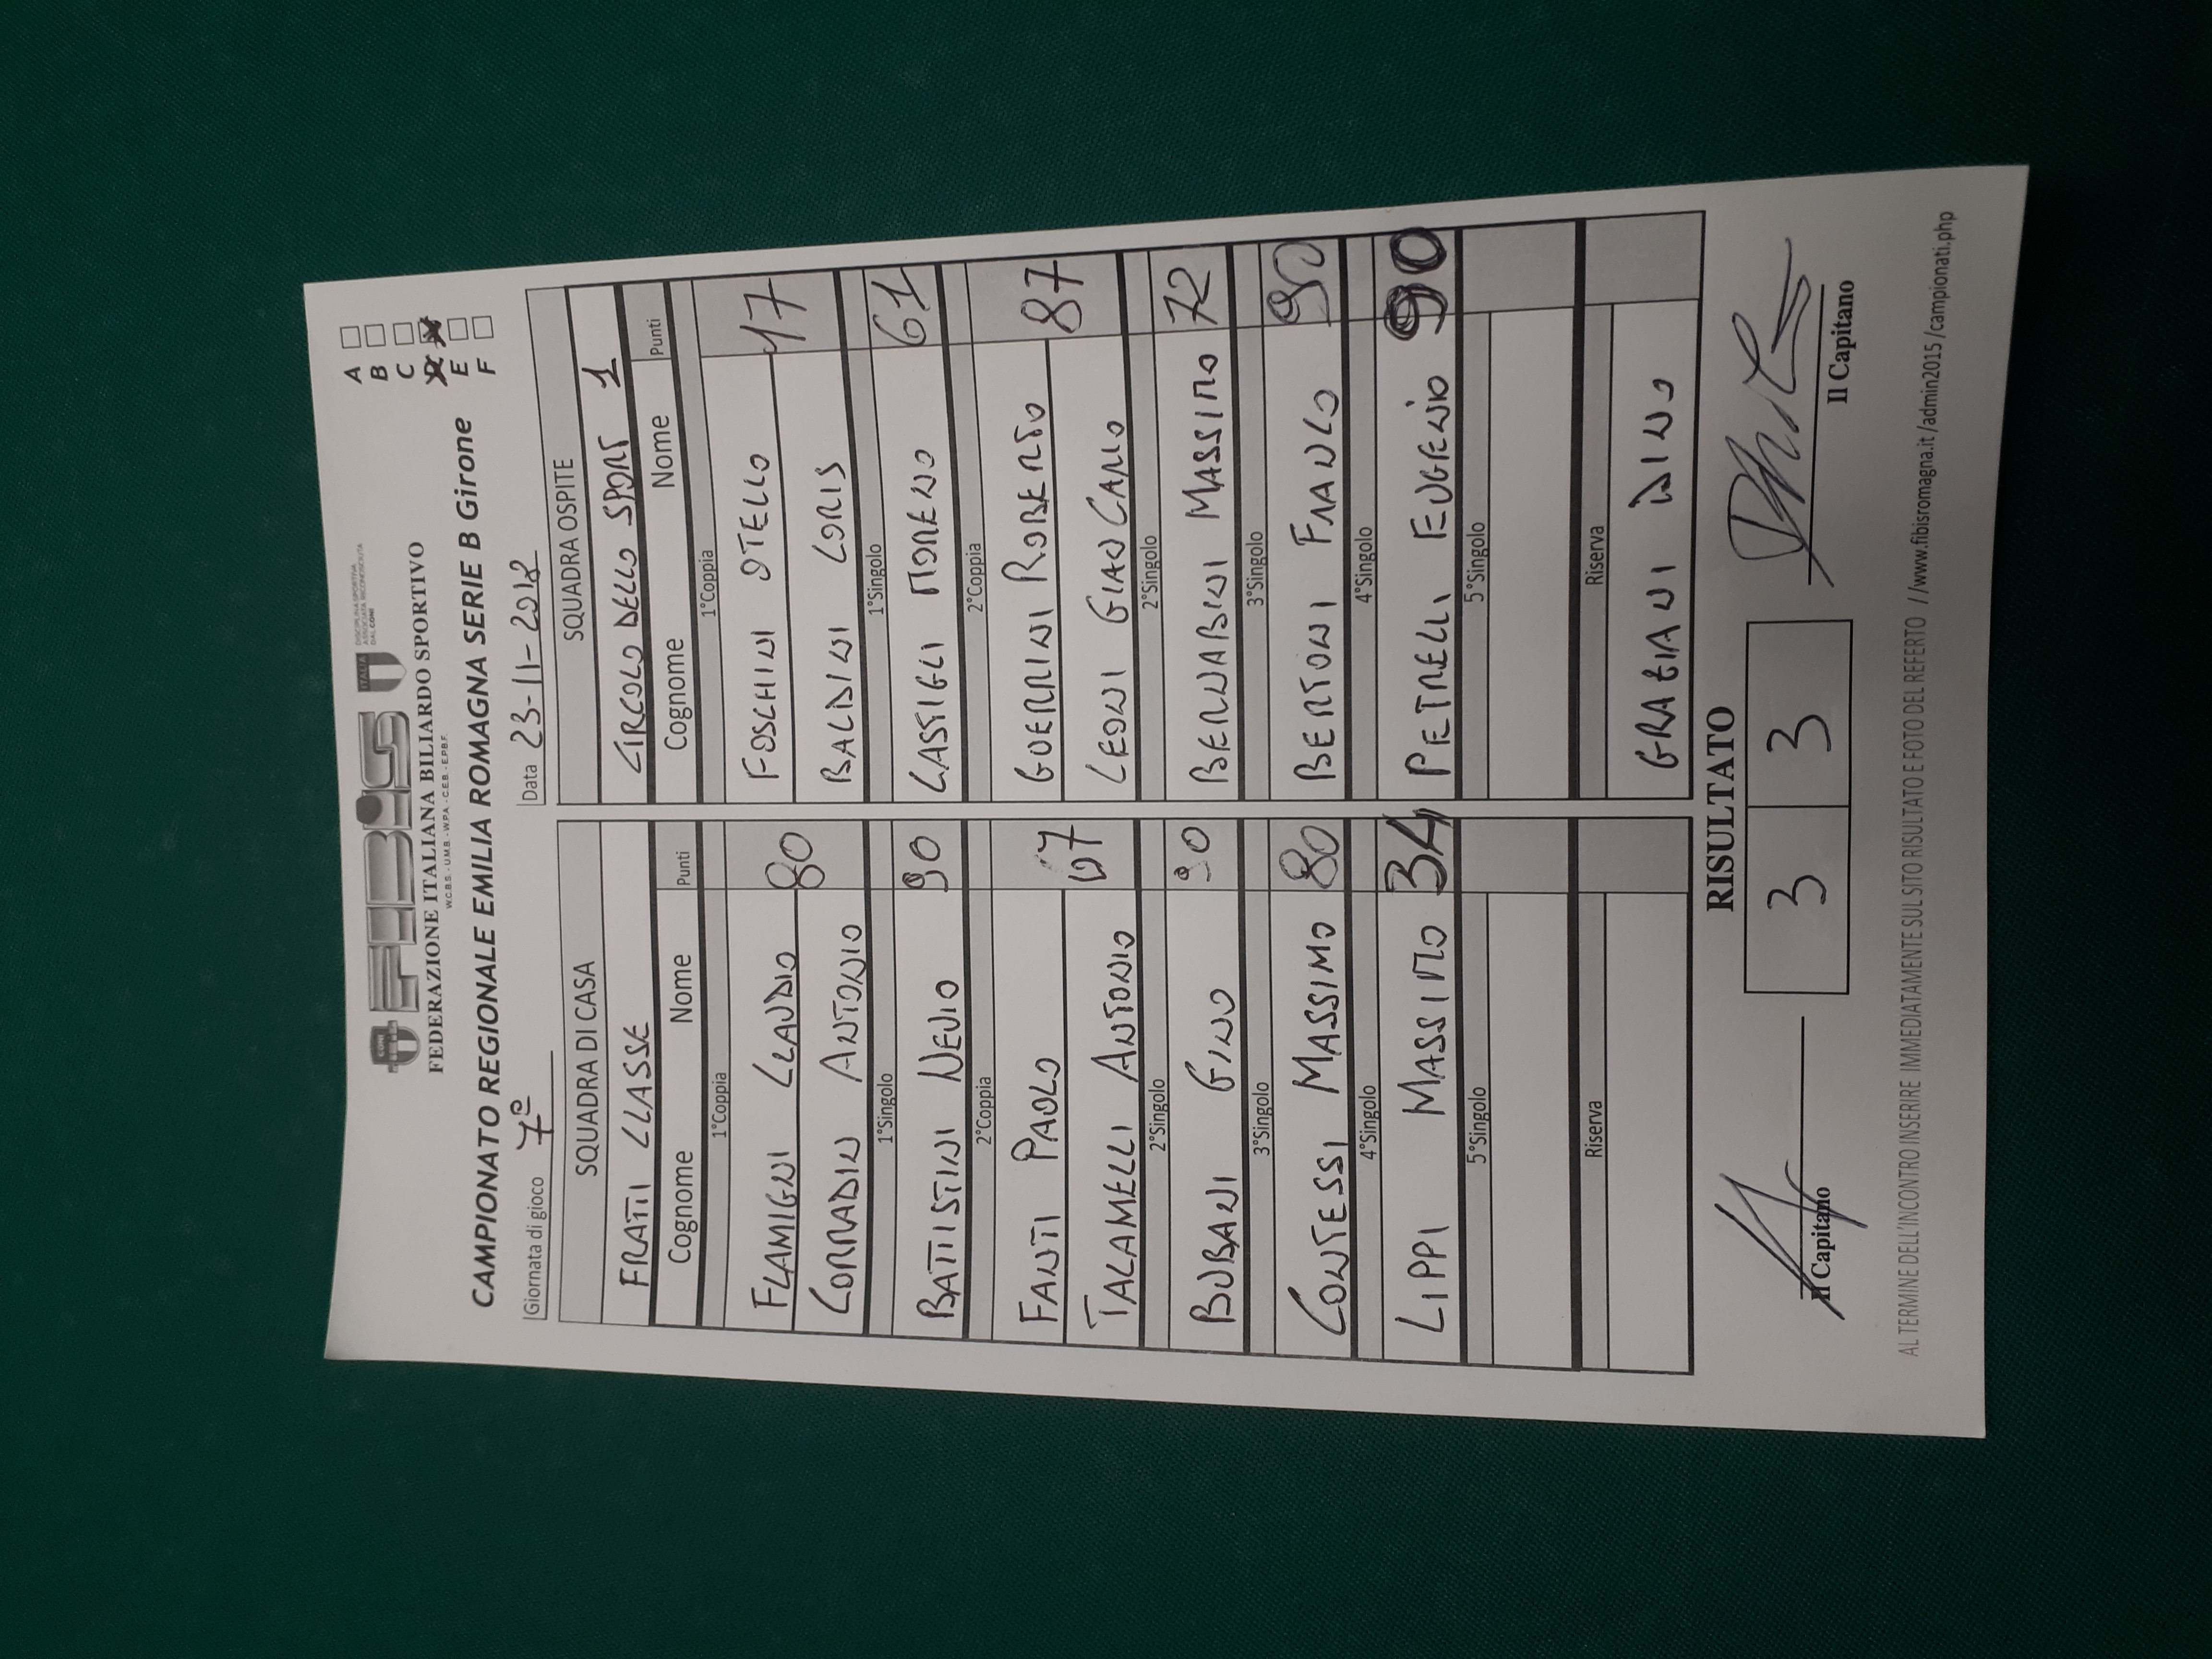 FIBiS
CONI
ITALIA
DISCIPLINA SPORTIVA
ASSOCIATA RICONOSCIUTA
DAL CONI
FEDERAZIONE ITALIANA BILIARDO SPORTIVO
W.C.B.S. - U.M.B. - W.P.A. - C.E.B. - E.P.B.F.
CAMPIONATO REGIONALE EMILIA ROMAGNA SERIE B Girone
A
B
C
D
E
F
Giornata di gioco 7ª Data 23-11-2018
SQUADRA DI CASA SQUADRA OSPITE
FRATTI CLASSE CIRCOLO DELLO SPORT 1
Cognome Nome Punti Cognome Nome Punti
1°Coppia 1°Coppia
FLAMIGNI CLAUDIO 80 FOSCHINI OTELLO 47
CORRADIN ANTONIO BALDINI LORIS
1°Singolo 1°Singolo
BATTISTINI NEVIO 90 CASTIGLI MORENO 61
2°Coppia 2°Coppia
FANTI PAOLO GUERRINI ROBERTO 87
TALAMELLI ANTONIO LEONI GIANCARLO
2°Singolo 2°Singolo
BUBANI GINO 90 BERNABINI MASSIMO 72
3°Singolo 3°Singolo
CONTESSI MASSIMO 80 BERTONI FRANCO 90
4°Singolo 4°Singolo
LIPPI MASSIMO 34 PETRELLI EUGENIO 90
5°Singolo 5°Singolo
Riserva Riserva
GRAZIANI DINO
RISULTATO
3 3
Il Capitano Il Capitano
AL TERMINE DELL'INCONTRO INSERIRE IMMEDIATAMENTE SUL SITO RISULTATO E FOTO DEL REFERTO //www.fibisromagna.it/admin2015/campionati.php